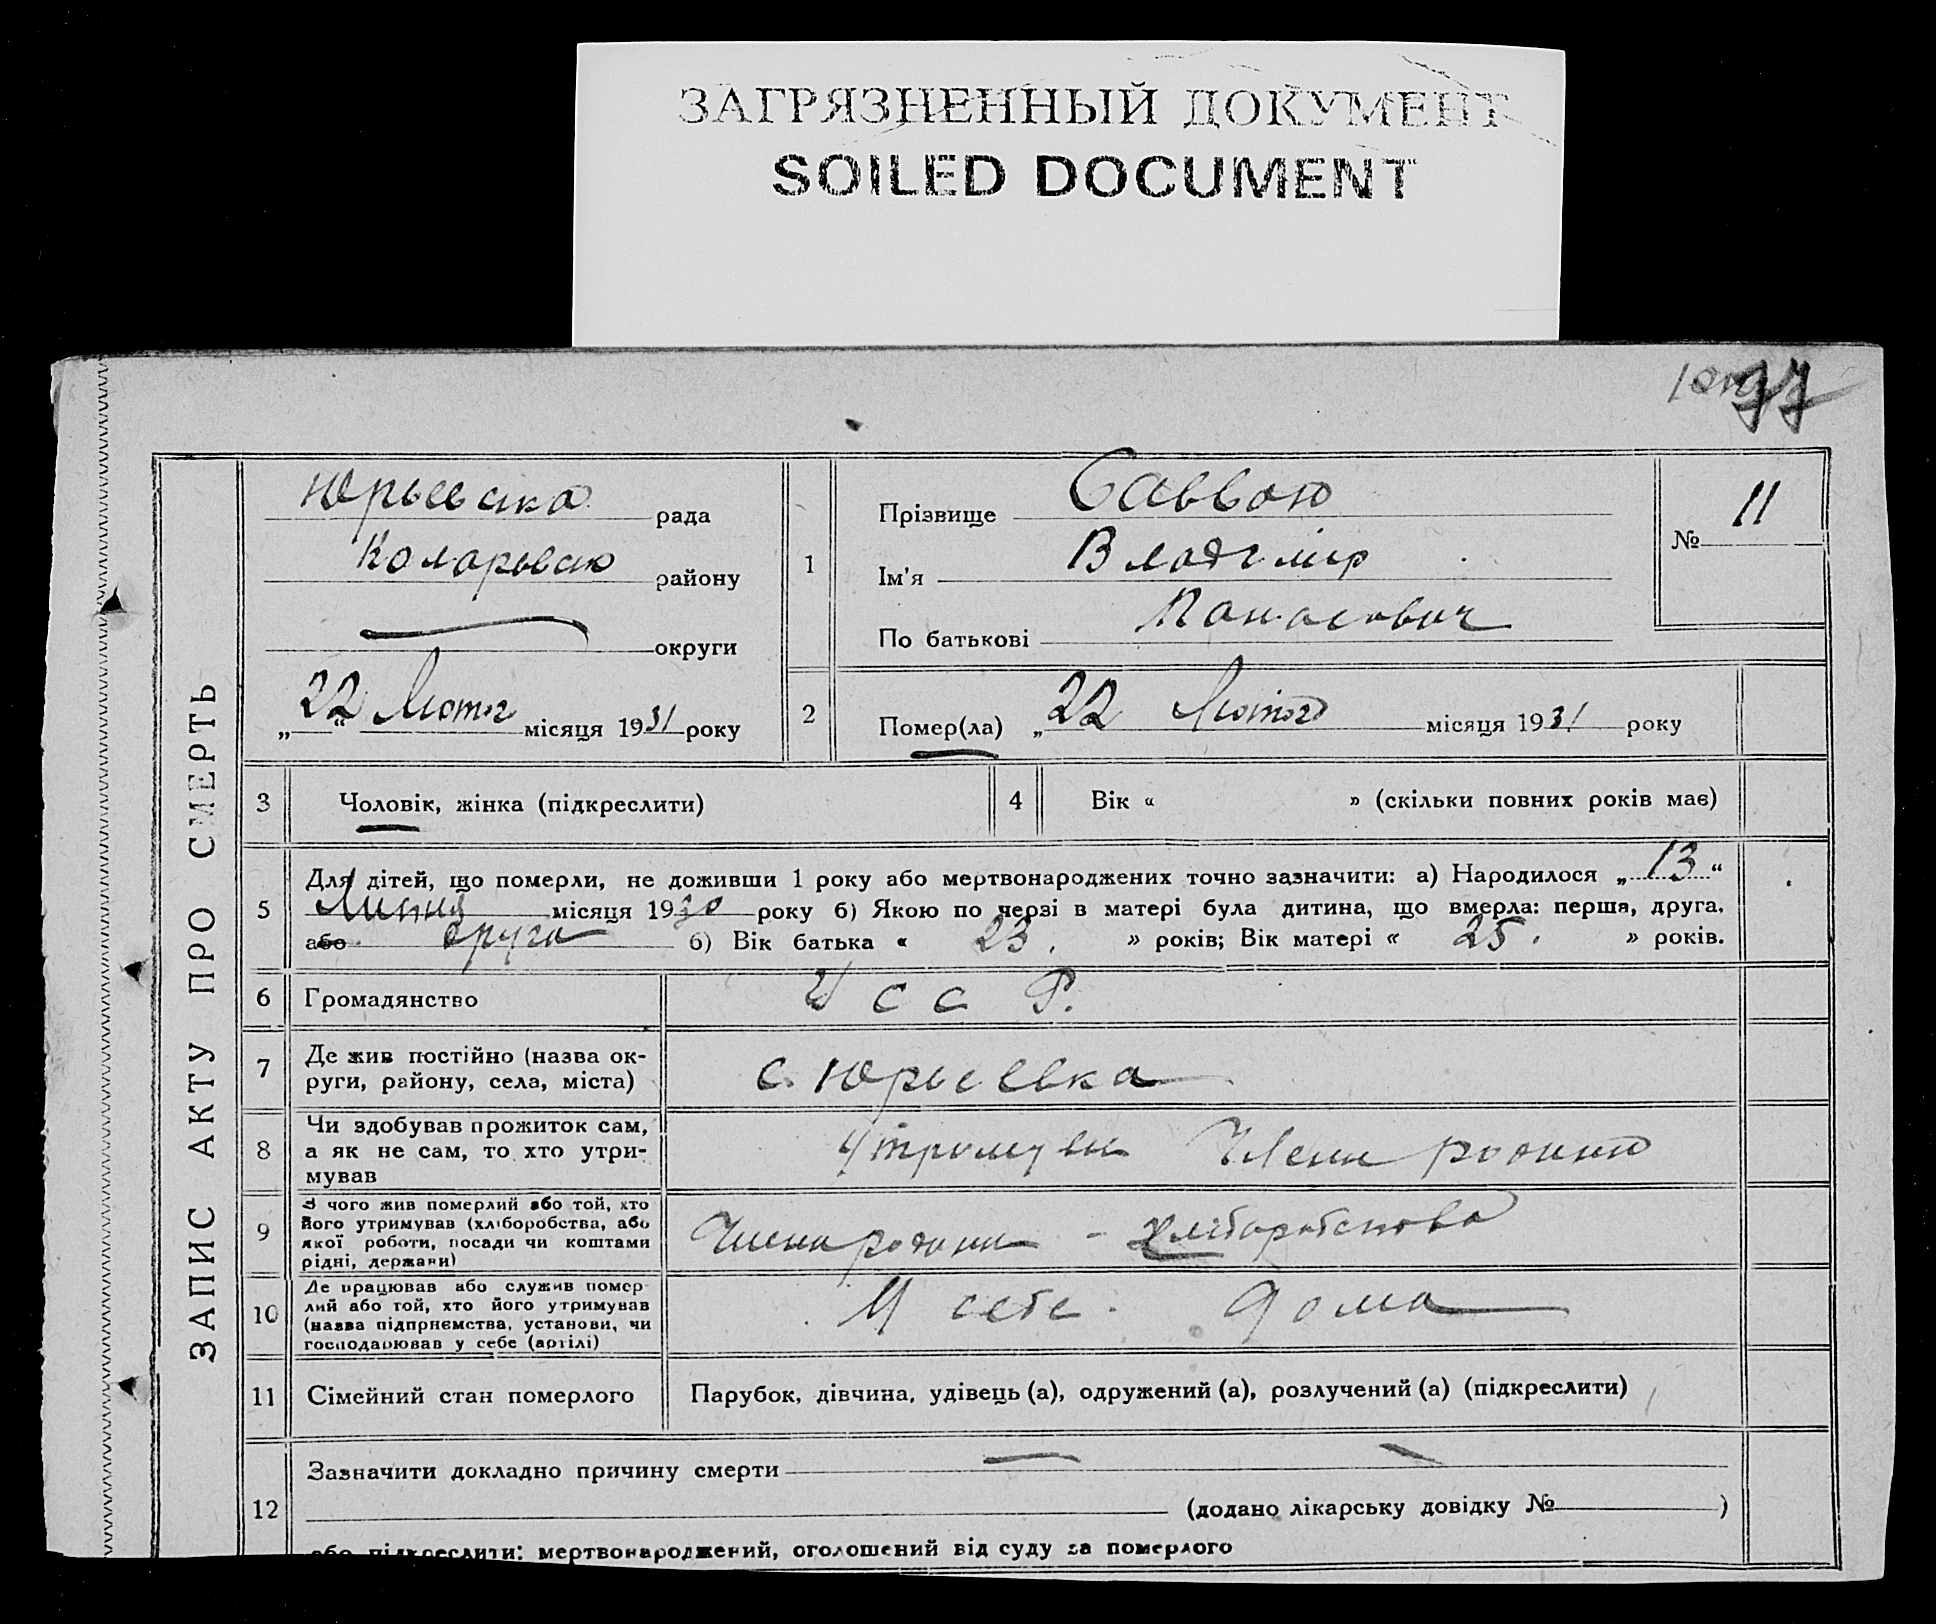 ЗАГРЯЗНЕННЫЙ ДОКУМЕНТ
SOILED DOCUMENT
77
ЗАПИС АКТУ ПРО СМЕРТЬ
Юрьевска рада
Коларьвсько району
округи
„22“ Лютог місяця 1931 року
1
Прізвище Саввою
Ім'я Владімір
По батькові Панасович
№ 11
2
Помер(ла) „22 Лютого місяця 1931 року
3 Чоловік, жінка (підкреслити)
4 Вік « » (скільки повних років має)
5 Для дітей, що померли, не доживши 1 року або мертвонароджених точно зазначити: а) Народилося „13“
Липня місяця 1930 року б) Якою по черзі в матері була дитина, що вмерла: перша, друга,
або друга б) Вік батька « 23. » років; Вік матері « 25. » років.
6 Громадянство УССР.
7 Де жив постійно (назва ок-
руги, району, села, міста)
с. Юрьевка
8 Чи здобував прожиток сам,
а як не сам, то хто утри-
мував
Утримували Члени родини
9 З чого жив померлий або той, хто
його утримував (хліборобства, або
якої роботи, посади чи коштами
рідні, держави)
Члени родини - хліборобство
10 Де працював або служив помер-
лий або той, хто його утримував
(назва підприємства, установи, чи
господарював у себе (артілі)
У себе дома
11 Сімейний стан померлого Парубок, дівчина, удівець (а), одружений (а), розлучений (а) (підкреслити)
12 Зазначити докладно причину смерти
(додано лікарську довідку № )
або підкреслити: мертвонароджений, оголошений від суду за померлого